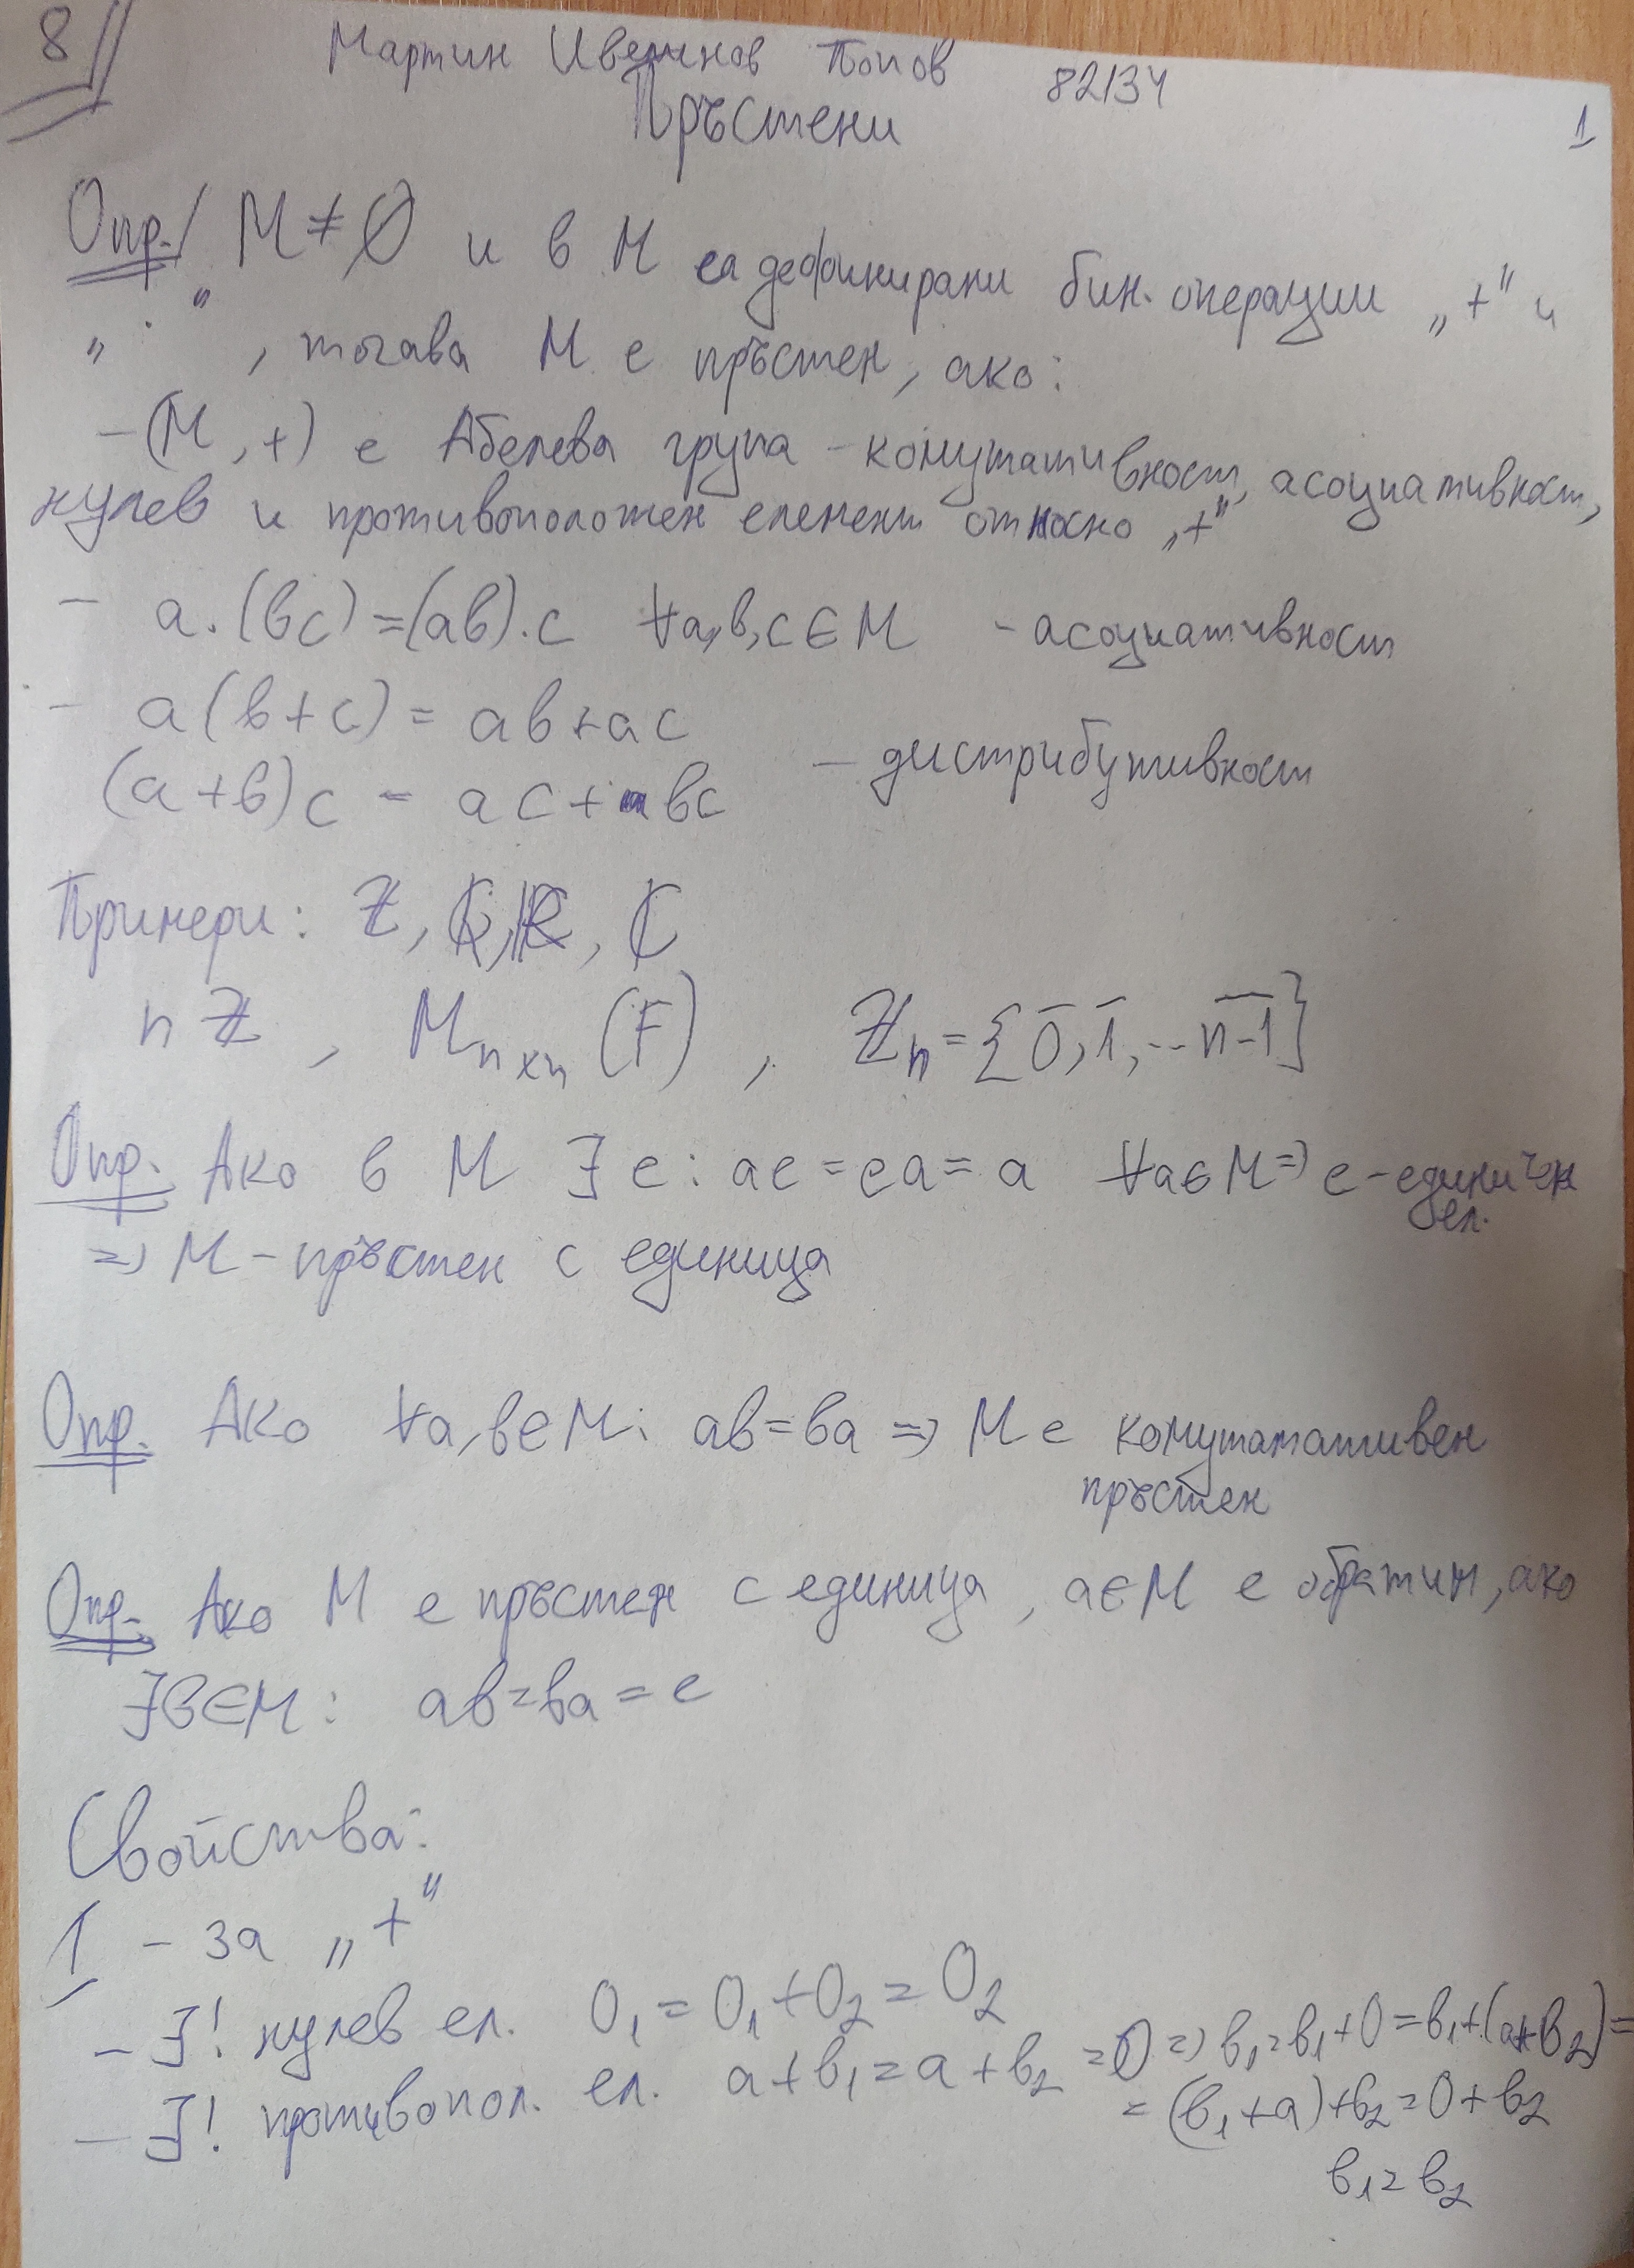 8//
Мартин Ивелинов Попов 82134
Пръстени
1
Опр./ M ≠ ∅ и в M са дефинирани бин. операции „+" и
„ · ", тогава M е пръстен, ако:
- (M, +) е Абелева група - комутативност, асоциативност,
нулев и противоположен елемент относно „+"
- a.(bc) = (ab).c ∀a,b,c ∈ M - асоциативност
- a(b+c) = ab+ac
(a+b)c = ac+bc - дистрибутивност
Примери: ℤ, ℚ, ℝ, ℂ
nℤ, M_{n×n}(F), ℤ_n = {0̅, 1̅, ... n̅-̅1̅}
Опр. Ако в M ∃ e: ae = ea = a ∀a∈M => e - единичен
ел.
=> M - пръстен с единица
Опр. Ако ∀a,b∈M: ab = ba => M е комутативен
пръстен
Опр. Ако M е пръстен с единица, a∈M е обратим, ако
∃b∈M: ab = ba = e
Свойства:
1 - за „+"
- ∃! нулев ел. 0₁ = 0₁ + 0₂ = 0₂
- ∃! противопол. ел. a+b₁ = a+b₂ = 0 => b₁ = b₁+0 = b₁+(a+b₂) =
= (b₁+a)+b₂ = 0+b₂
b₁ = b₂